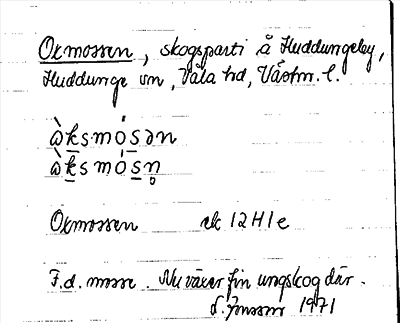 Oxmossen, skogsparti å Huddungeby,
Huddunge sn, Våla hd, Västm. l.
ὼksmósən
ὼksmósn̥
Oxmossen ek 12H1e
F.d. mosse. Nu växer fin ungskog där.
S. Jonsson 1971